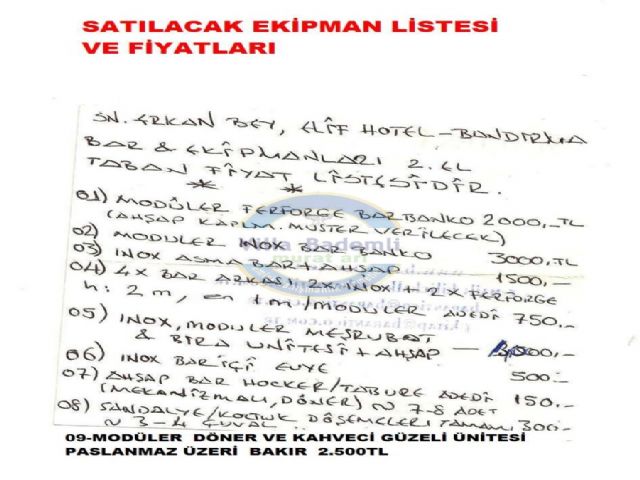 SATILACAK EKİPMAN LİSTESİ
VE FİYATLARI
SN. ERKAN BEY, ELİF HOTEL-BANDIRMA
BAR & EKİPMANLARI 2. EL
TABAN FİYAT LİSTESİDİR.
* *
01) MODÜLER FERFORGE BAR BANKO 2000,-TL
(AHŞAP KAPLM. MUSTER VERİLECEK)
02) MODULER INOX BAR BANKO 3000,TL
03) INOX ASMA BAR + AHŞAP 1500,-
04) 4X BAR ARKASI 2X INOX + 2X FERFORGE
h: 2 m, en 1 m/MODÜLER ADEDİ 750,-
05) INOX, MODULER MEŞRUBAT
& BIRA UNİTESİ + AHŞAP -
06) INOX BAR İÇİ EVYE 500,-
07) AHŞAP BAR HOCKER/TABURE ADEDİ 150,-
(MEKANİZMALI, DÖNER) ~ 7-8 ADET
08) SANDALYE/KOLTUK DÖŞEMELERİ TAMAMI 300,-
~ 3-4 ÇUVAL
09-MODÜLER DÖNER VE KAHVECİ GÜZELİ ÜNİTESİ
PASLANMAZ ÜZERİ BAKIR 2.500TL
Villa Bademli
murat arı